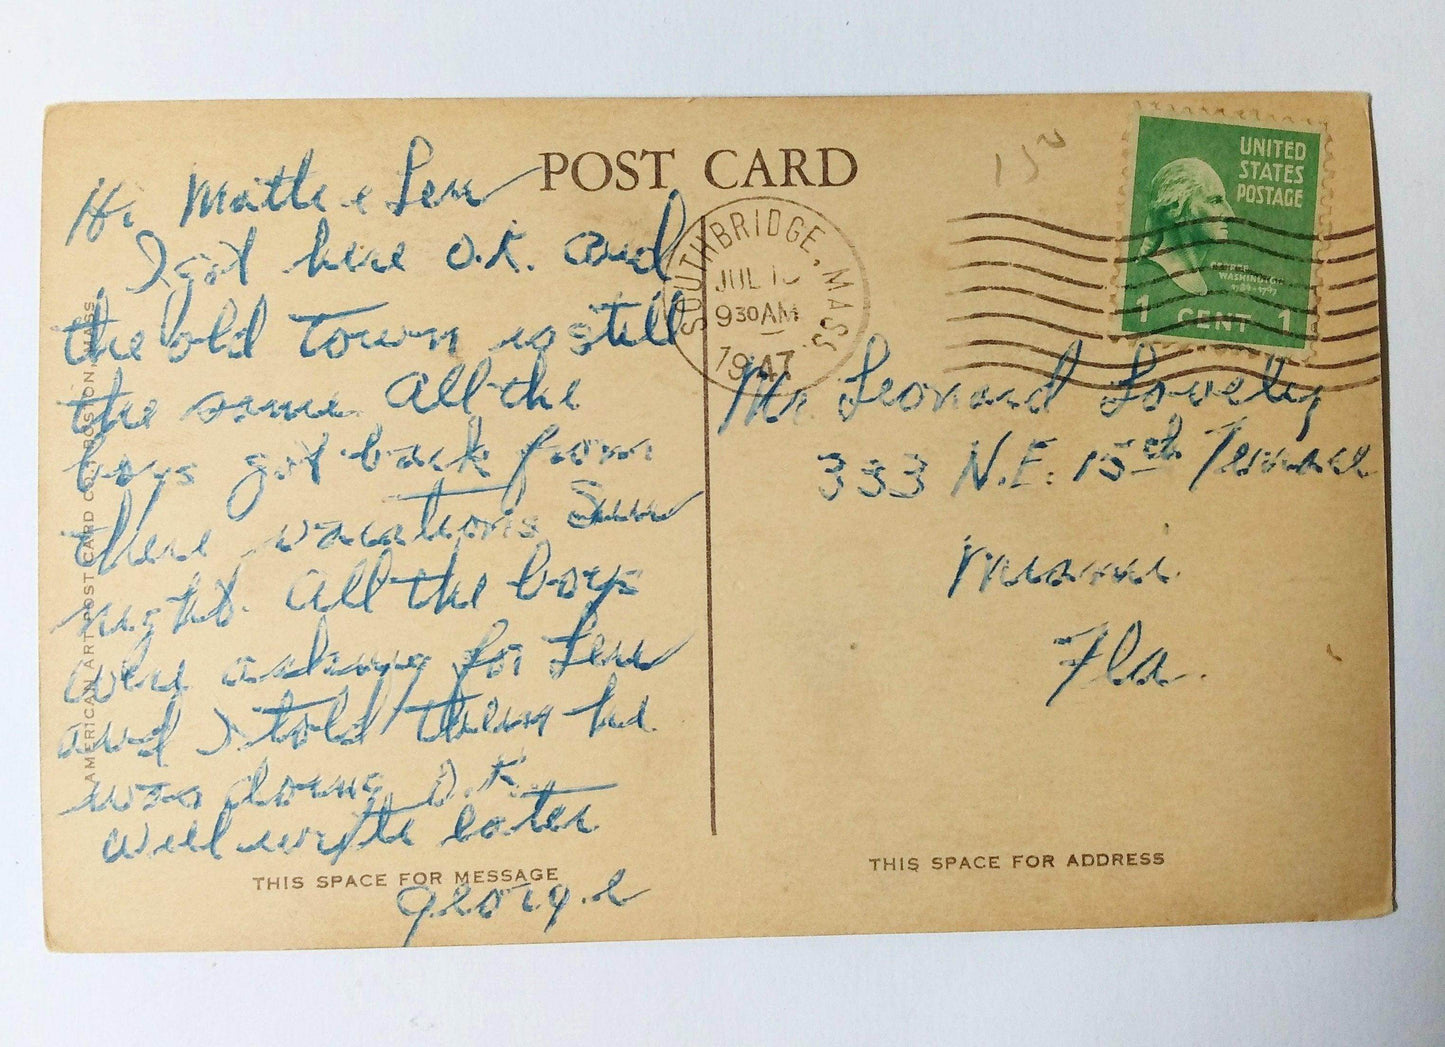 POST CARD
Hi Mattie & Len
I got here O.K. and
the old town is still
the same. All the
boys got back from
there vacations Sun
night. All the boys
were asking for Len
and I told them he
was doing O.K.
will write later
George
THIS SPACE FOR MESSAGE
AMERICAN ART POST CARD CO., BOSTON, MASS.
SOUTHBRIDGE, MASS.
JUL
9 30 AM
1947
UNITED
STATES
POSTAGE
GEORGE
WASHINGTON
1789-1797
1 CENT 1
Mr Leonard Lovely
333 N.E. 15th Terrace
Miami
Fla.
THIS SPACE FOR ADDRESS